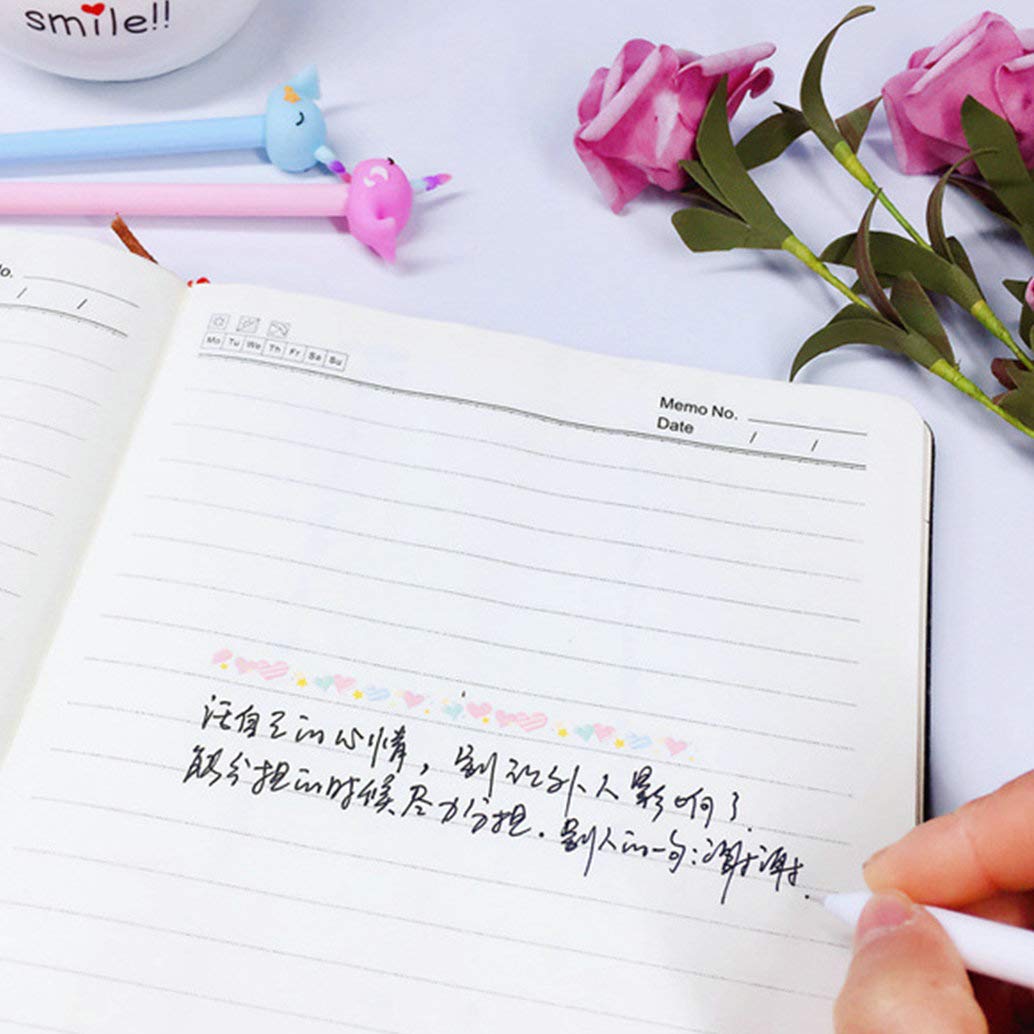 smile!!
o.
/ /
Mo Tu We Th Fr Sa Su
Memo No.
Date / /
活自己的心情，别被外人影响了.
能分担的时候尽力分担.别人的一句:谢谢.